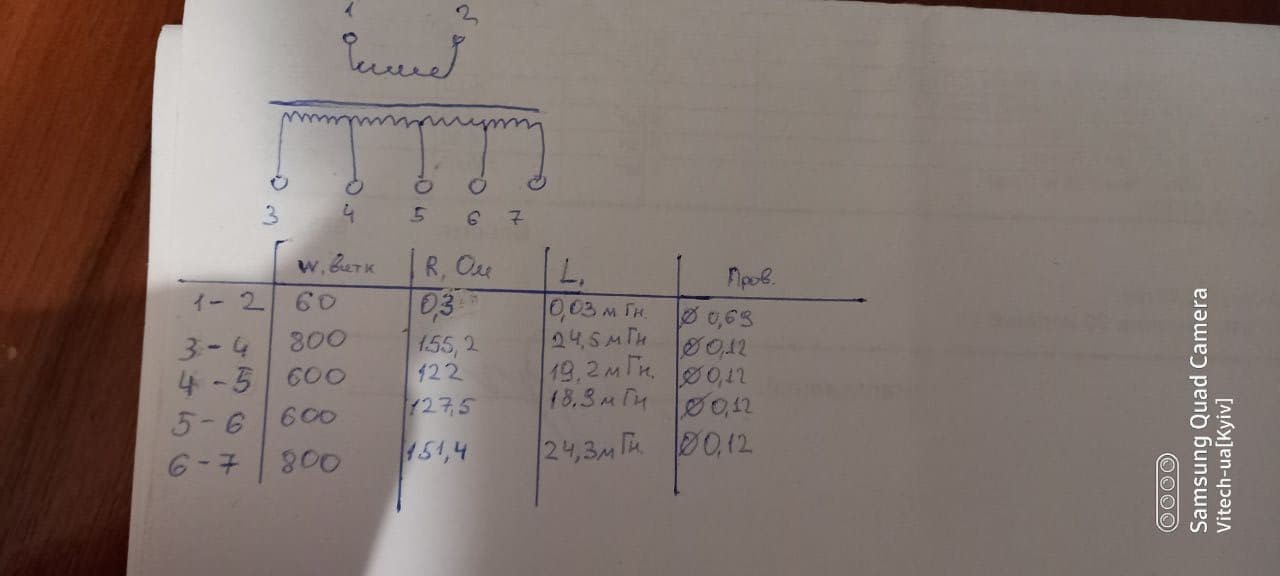 1 2
3 4 5 6 7
W, витк R, Ом L, Пров.
1-2 60 0,3 0,03 мГн. Ø 0,69
3-4 800 155,2 24,5 мГн Ø 0,12
4-5 600 122 19,2 мГн. Ø 0,12
5-6 600 127,5 18,9 мГн Ø 0,12
6-7 800 151,4 24,3 мГн. Ø 0,12
Samsung Quad Camera
Vitech-ua[Kyiv]